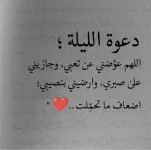 دعوة الليلة ؛
اللهم عوّضني عن تعبي، وجازيني
على صبري، وارضيني بنصيبي؛
اضعاف ما تحمّلت..❤️ "